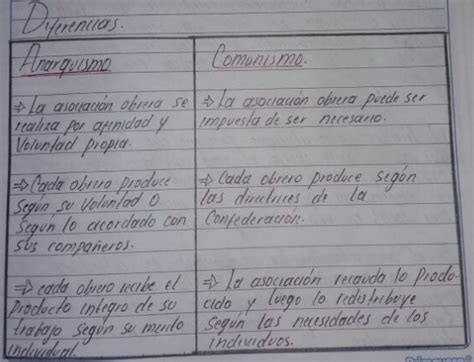 Diferencias.
Anarquismo
⇒ La asociación obrera se
realiza por afinidad y
voluntad propia.
⇒ Cada obrero produce
según su voluntad o
según lo acordado con
sus compañeros.
⇒ cada obrero recibe el
producto integro de su
trabajo según su merito
individual.
Comunismo.
⇒ La asociación obrera puede ser
impuesta de ser necesario.
⇒ Cada obrero produce según
las directrices de la
Confederación.
⇒ La asociación recauda lo produ-
cido y luego lo redistribuye
según las necesidades de los
individuos.